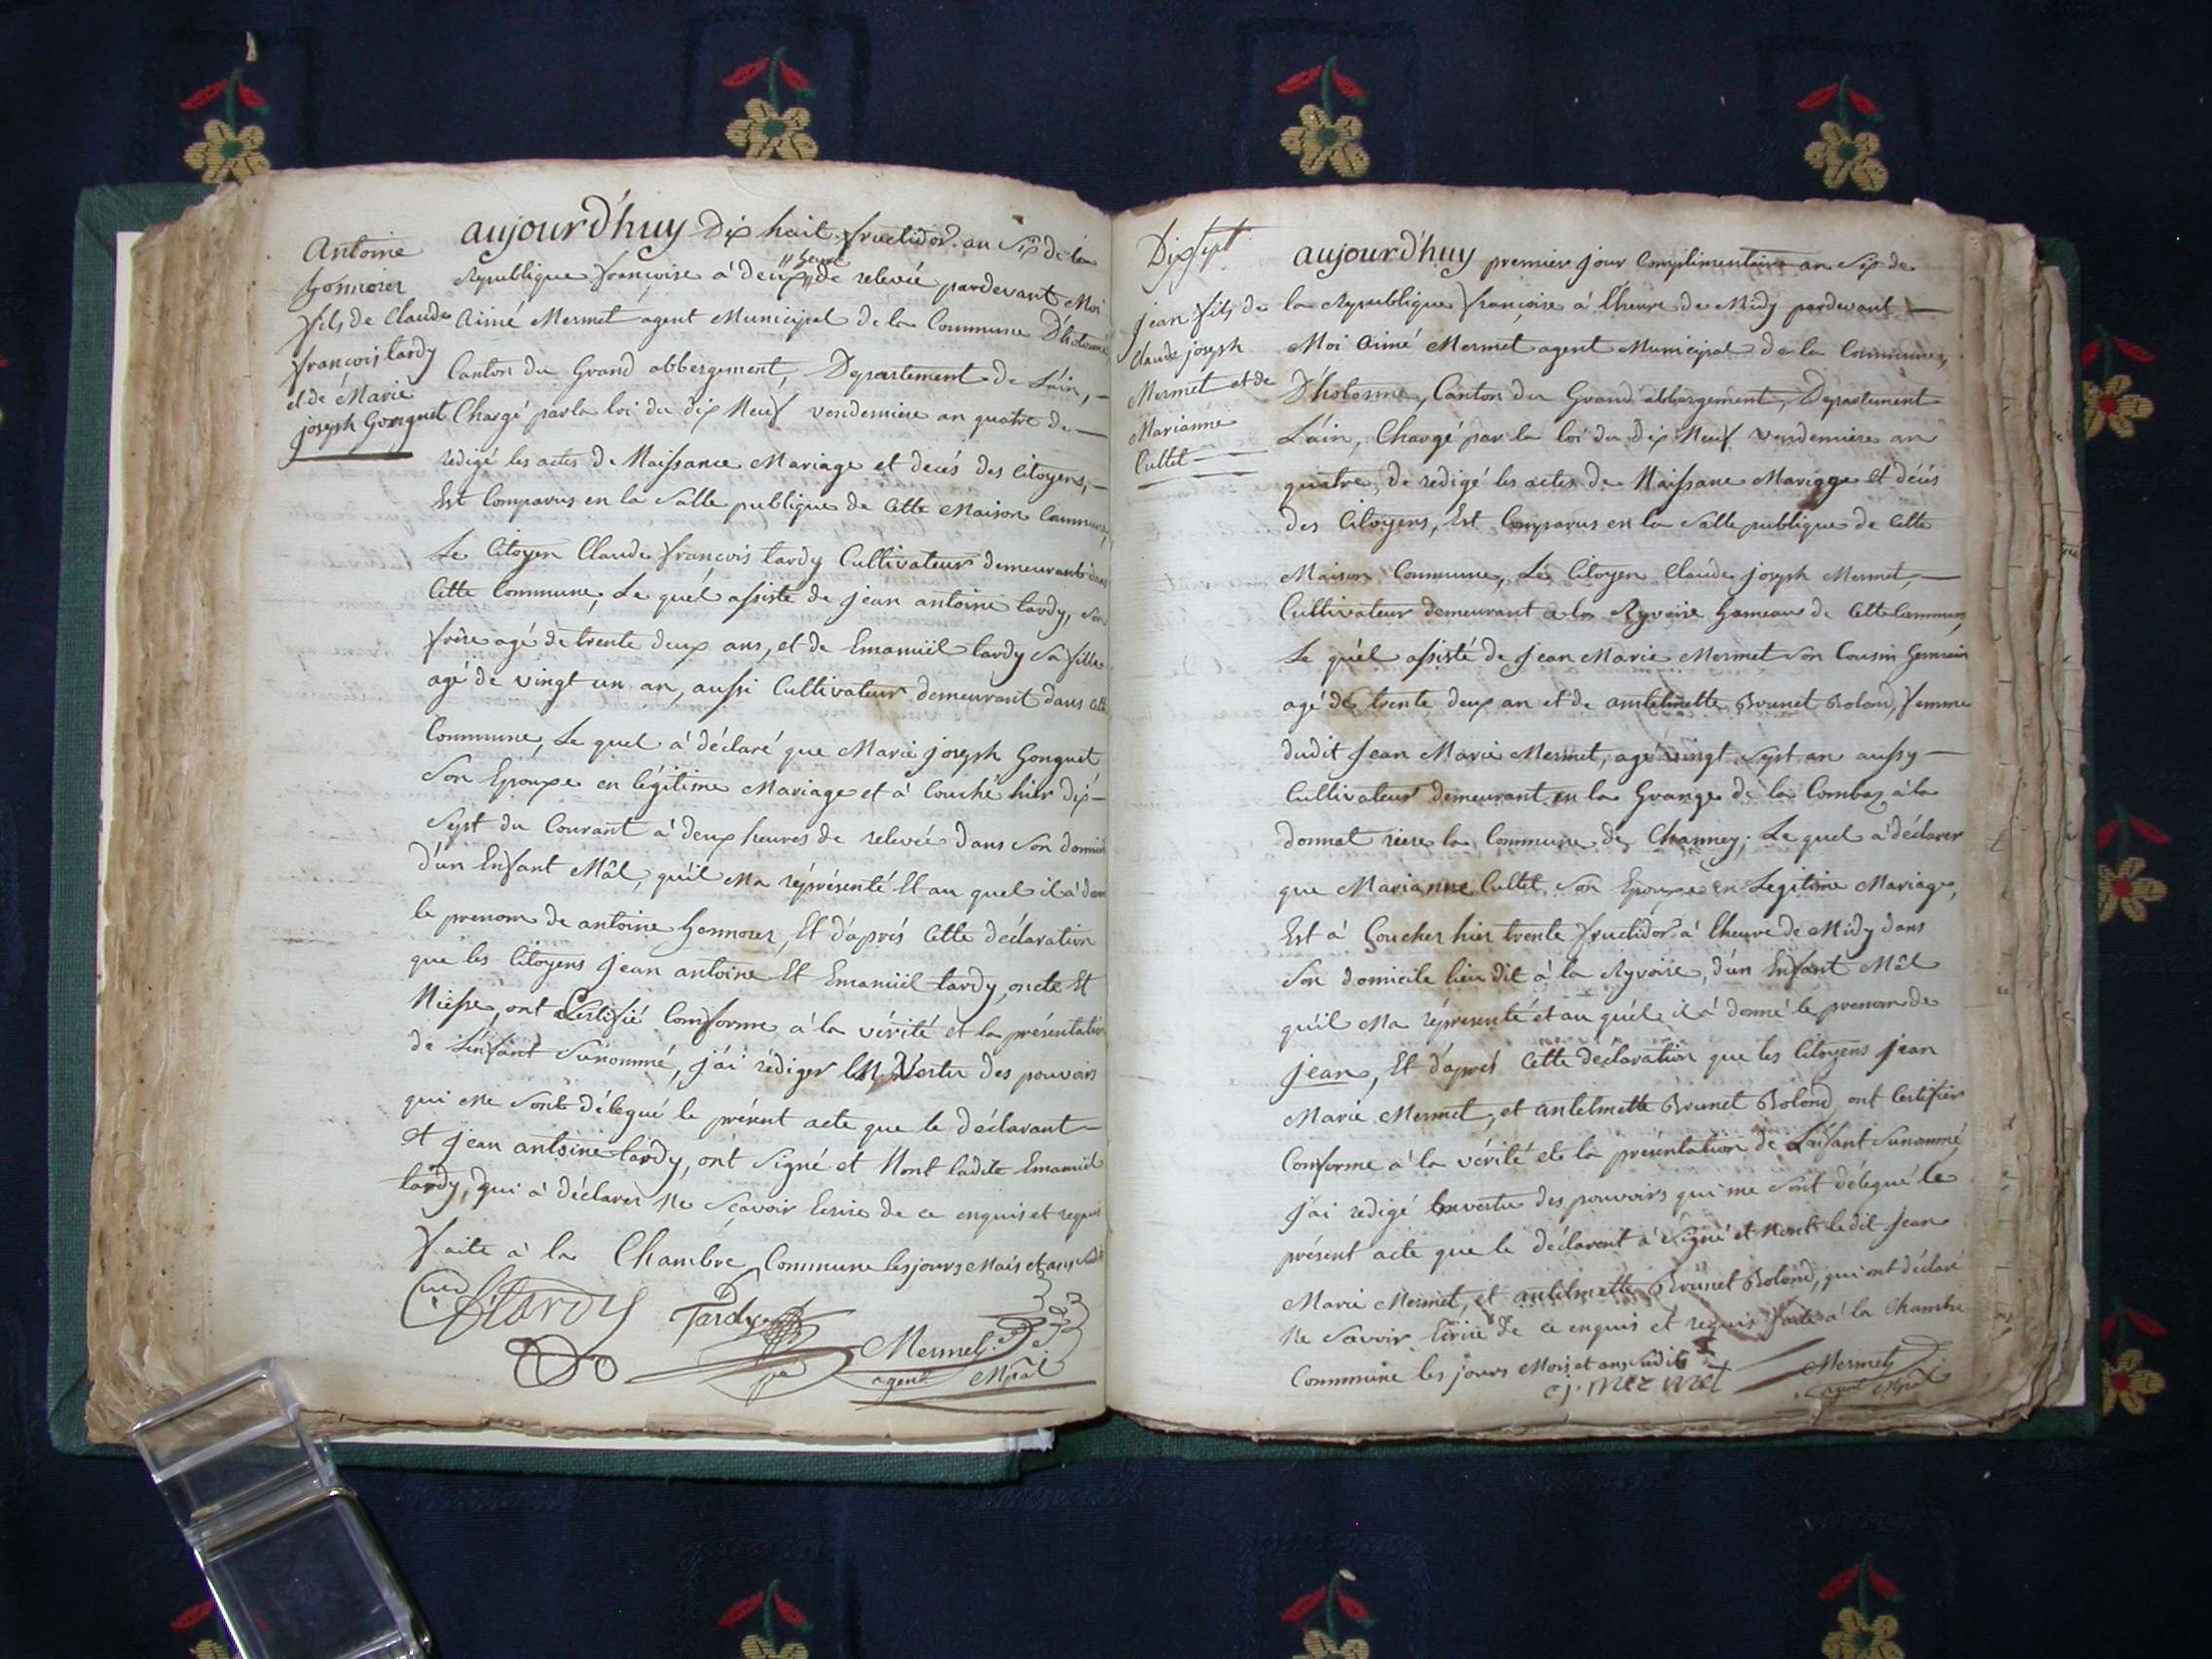 Antoine
honnorer
fils de Claude
françois tardy
et de Marie
joseph Gonguet
aujourd'huy Dix huit fructidor an Six de la
heures
Republique françoise à deux de relevée pardevant Moi
Aimé Mermet agent Municipal de la Commune D'hotonne
Canton du Grand abbergement, Departement de L'ain,
Chargé par la loi du dix Neuf vendemiere an quatre de
redigé les actes de Naissance Mariage et decés des Citoyens,
Est Comparus en la Salle publique de Cette Maison Commune,
Le Citoyen Claude françois tardy Cultivateur demeurant dans
Cette Commune, Le quel assisté de jean antoine tardy, son
frère agé de trente deux ans, et de Emanuël tardy sa fille
agé de vingt un an, aussi Cultivateur demeurant dans Cette
Commune, Le quel à déclaré que Marie joseph Gonguet
Son Epouse en légitime Mariage et à Couché hier dix
Sept du Courant à deux heures de relevée dans Son domicile
d'un Enfant Mâl, qu'il Ma répresenté Et au quel il à donné
le prenom de antoine honnorer, Et d'aprés Cette déclaration
que les Citoyens jean antoine Et Emanuël tardy, oncle Et
Niesse, ont Certifié Conforme à la vérité et la présentation
de L'enfant Sunommé, j'ai rédiger En Vertu des pouvoirs
qui Me Sont délegué le présent acte que le déclarant
et jean antoine tardy, ont Signé et Nont ladite Emanuël
tardy, qui à déclarer Ne Sçavoir Ecrire de ce enquis et requis
faite à la Chambre Commune les jours Mois et ans Sudit
Tardy
Tardy
Mermet
agent Mpal
Dix Sept
jean fils de
Claude joseph
Mermet et de
Marianne
Cullet
aujourd'huy premier jour Complimentaire an Six de
la Republique françoise à l'heure de Midy pardevant
Moi Aimé Mermet agent Municipal de la Commune,
D'hotonne, Canton du Grand abbergement, Departement
L'ain, Chargé par la loi du dix Neuf vendemiere an
quatre, de redigé les actes de Naissane Mariage et décés
des Citoyens, Est Comparus en la Salle publique de Cette
Maison Commune, Le Citoyen Claude joseph Mermet,
Cultivateur demeurant a la Ryvoire hameau de Cette Commune,
Le quel assisté de jean Marie Mermet Son Cousin Germain
agé de trente deux an et de antelmette Brunet Bolond, femme
dudit jean Marie Mermet, agé vingt Sept an aussy
Cultivateur demeurant en la Grange de la Combaz à la
donnat riere la Commune de Channey; Le quel à déclarer
que Marianne Cullet Son Epouse en Legitime Mariage,
Est à Coucher hier trente fructidor à l'heure de Midy dans
Son domicile lieu dit à la Ryvoire, d'un Enfant Mâl
qu'il Ma répresenté et au quél il à donné le prenom de
jean, Et d'aprés Cette déclaration que les Citoyens jean
Marie Mermet, et antelmette Brunet Bolond, ont Certifier
Conforme à la vérité et la présentation de L'enfant Sunommé
j'ai redigé En vertu des pouvoirs qui me Sont délegué le
présent acte que le déclarant à Signé et Nont le dit jean
Marie Mermet, et antelmette Brunet Bolond, qui ont déclaré
Ne Savoir Ecrire de ce enquis et requis faite à la Chambre
Commune les jours Mois et ans Sudits
cj. mermet
Mermet
agent Mpal